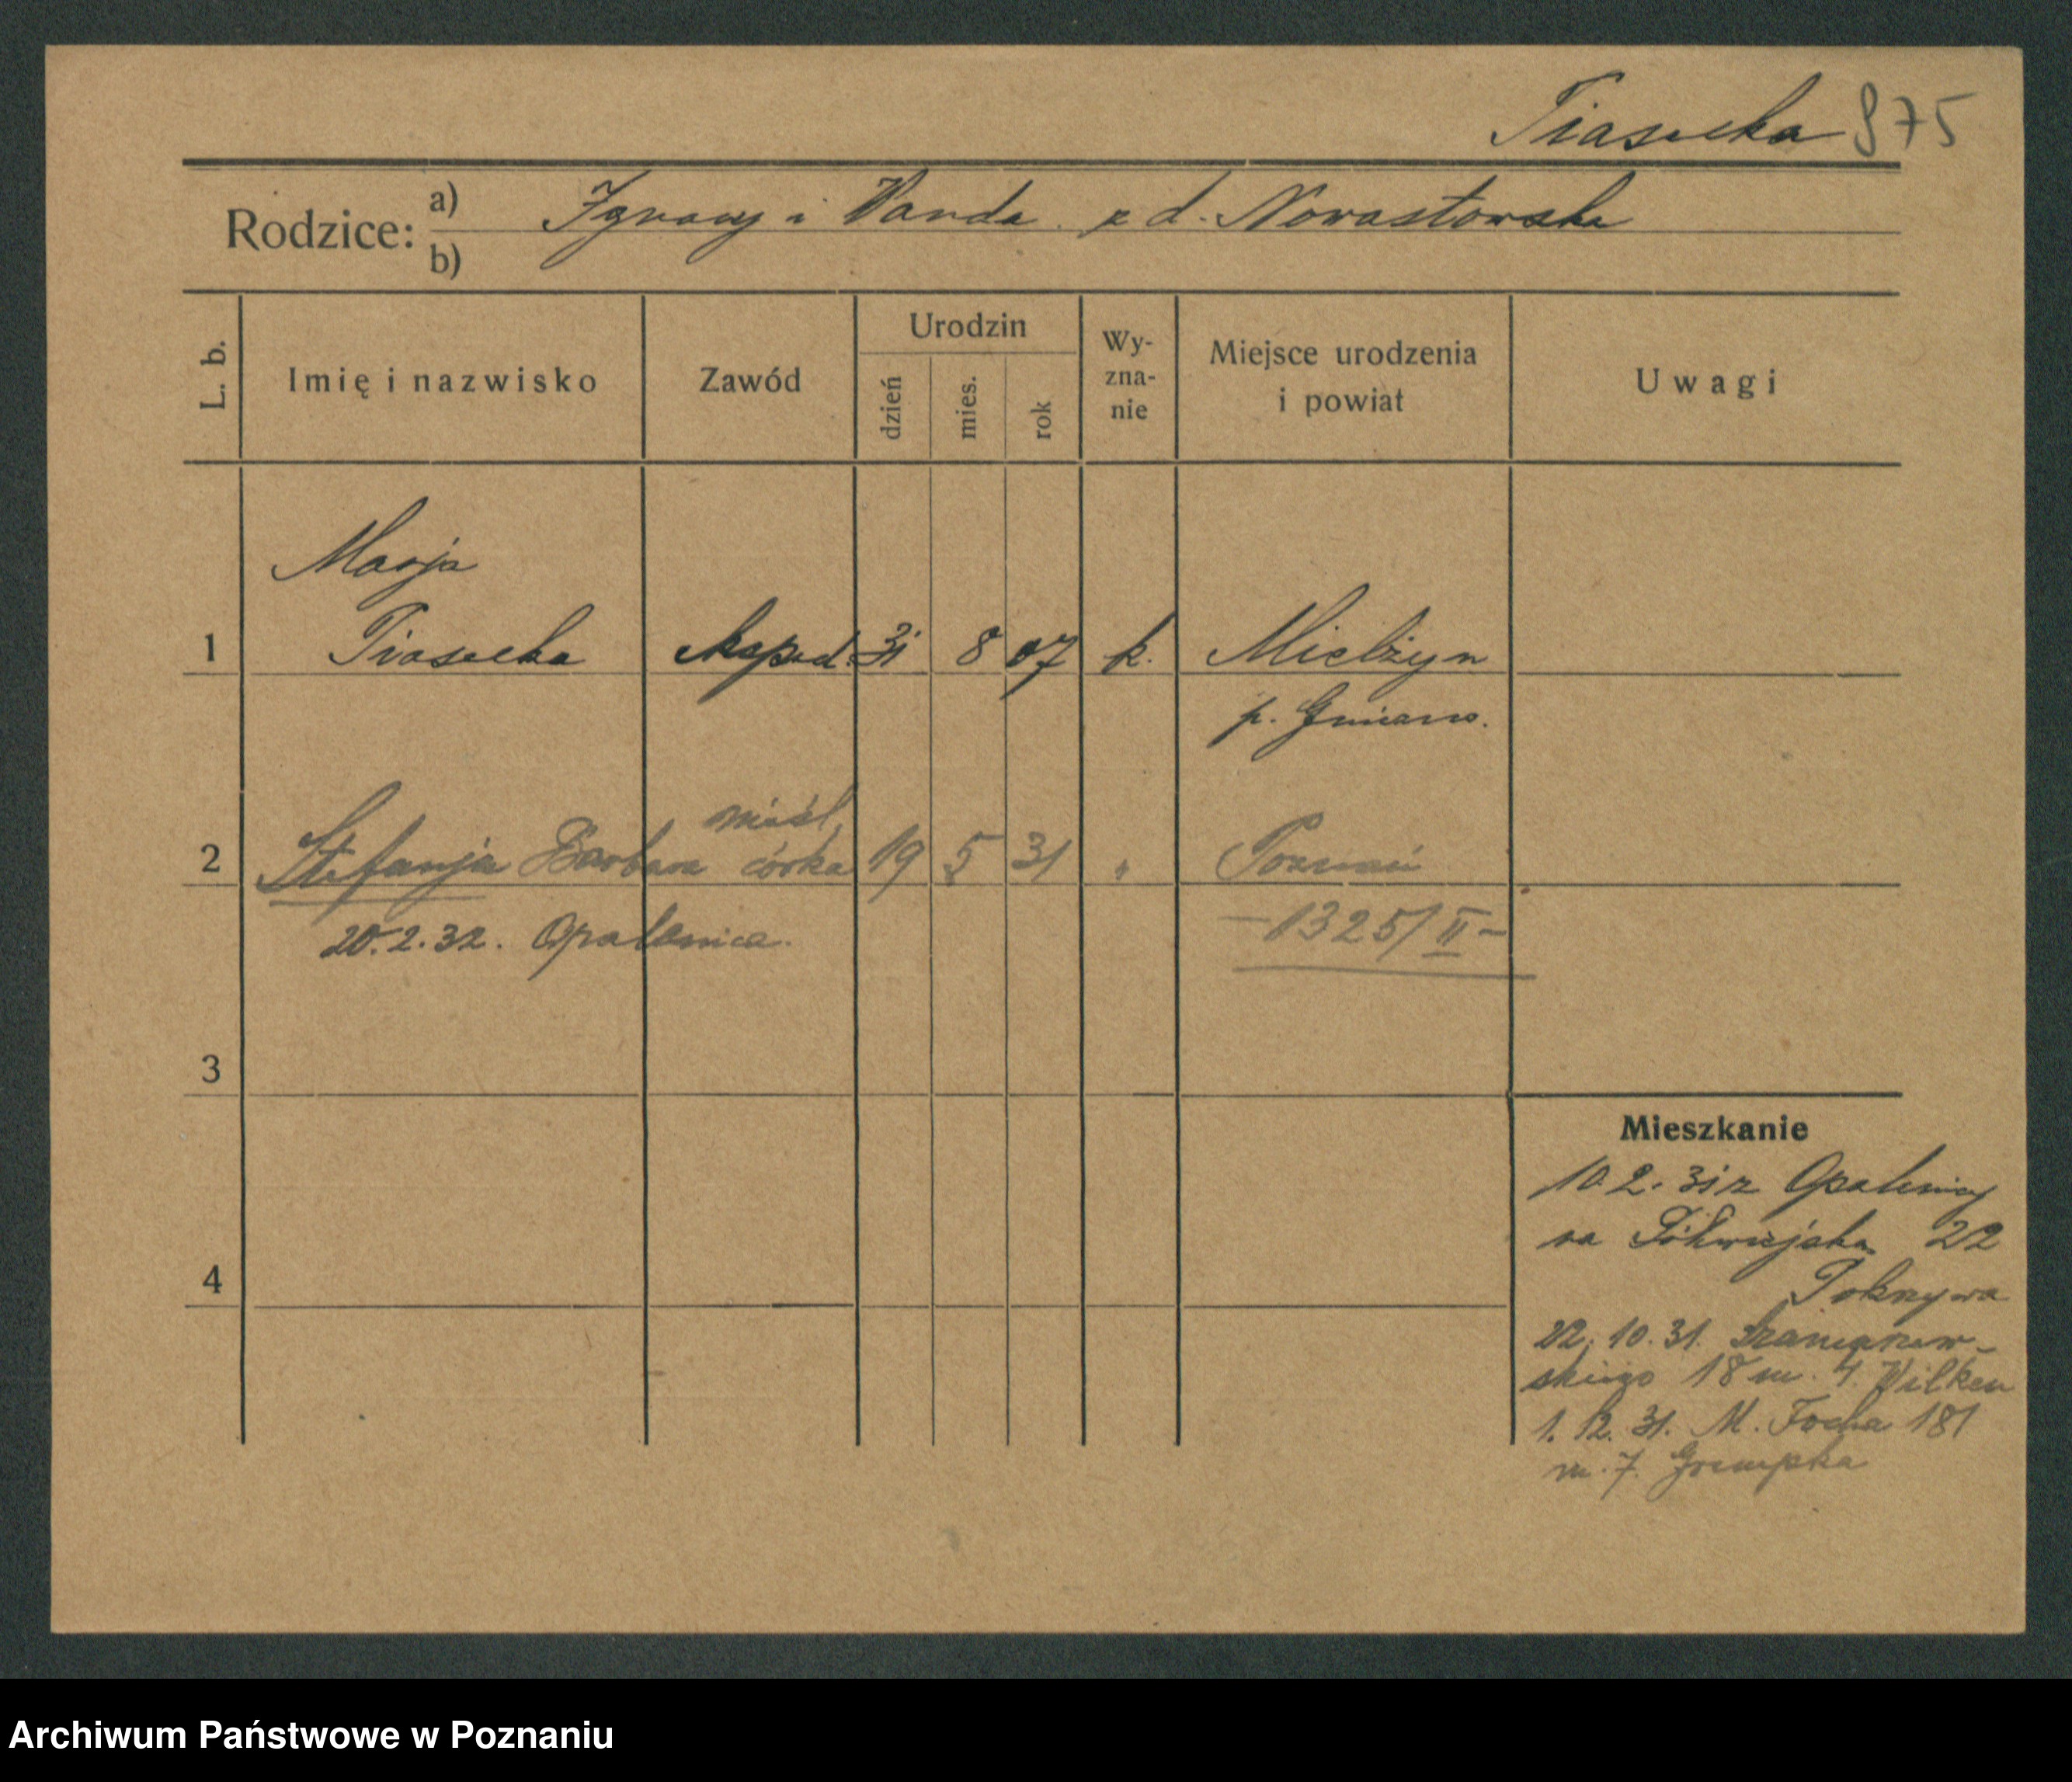 Piasecka 875
Rodzice: a) Ignacy i Wanda z d. Nowastowska
b)
L. b. Imię i nazwisko Zawód Urodzin dzień mies. rok Wy-zna-nie Miejsce urodzenia i powiat Uwagi
Marja
1 Piasecka eksped. 31 8 07 k. Mielżyn
p. Gniezno.
nieśl.
2 Stefanja Barbara córka 19 5 31 " Poznań
20.2.32. Opalenica.
-1325/II-
3
Mieszkanie
10.2.31 z Opalenicy
na Półwiejska 22
4
Pokrywa
22.10.31. Szamarzew-
skiego 18 m. 4. Wilken
1.12.31. M. Focha 181
m. 7.
Archiwum Państwowe w Poznaniu